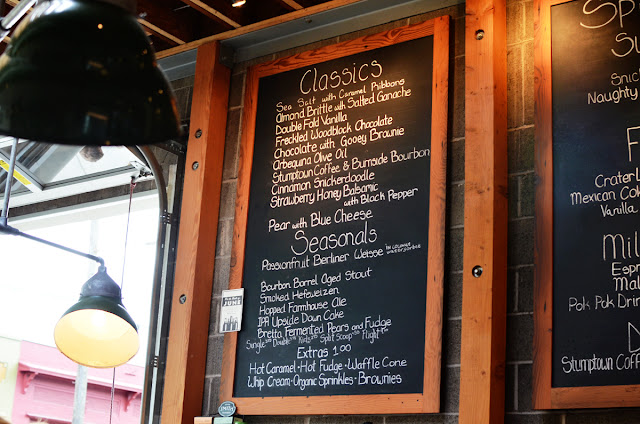 Classics
Sea Salt with Caramel Ribbons
Almond Brittle with Salted Ganache
Double Fold Vanilla
Freckled Woodblock Chocolate
Chocolate with Gooey Brownie
Arbequina Olive Oil
Stumptown Coffee & Burnside Bourbon
Cinnamon Snickerdoodle
Strawberry Honey Balsamic
with Black Pepper
Pear with Blue Cheese
Seasonals
Passionfruit Berliner Weisse
Bourbon Barrel Aged Stout
Smoked Hefeweizen
Hopped Farmhouse Ale
IPA Upside Down Cake
Bretta Fermented Pears and Fudge
Single Double Kids Split Scoop Flight
Extras 1.00
Hot Caramel · Hot Fudge · Waffle Cone
Whip Cream · Organic Sprinkles · Brownies
Sp
Su
Snic
Naughty
F
Crater L
Mexican Cok
Vanilla
Mil
Espr
Mal
Pok Pok Drin
D
Stumptown Coff